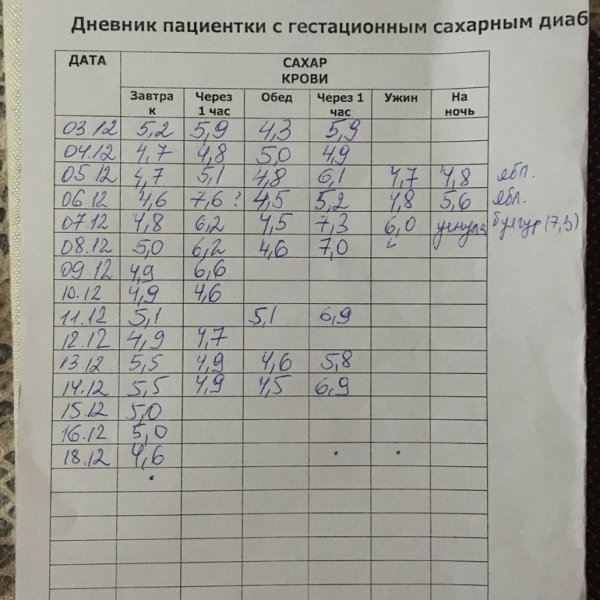 Дневник пациентки с гестационным сахарным диаб
ДАТА САХАР
КРОВИ
Завтра Через Обед Через 1 Ужин На
к 1 час час ночь
03.12 5,2 5,9 4,3 5,9
04.12 4,7 4,8 5,0 4,9
05.12 4,7 5,1 4,8 6,1 4,7 4,8 ябл.
06.12 4,6 7,6? 4,5 5,2 4,8 5,6 ябл.
07.12 4,8 6,2 4,5 7,3 6,0 уснула булгур (7,3)
08.12 5,0 6,2 4,6 7,0
09.12 4,9 6,6
10.12 4,9 4,6
11.12 5,1 5,1 6,9
12.12 4,9 4,7
13.12 5,5 4,9 4,6 5,8
14.12 5,5 4,9 4,5 6,9
15.12 5,0
16.12 5,0
18.12 4,6